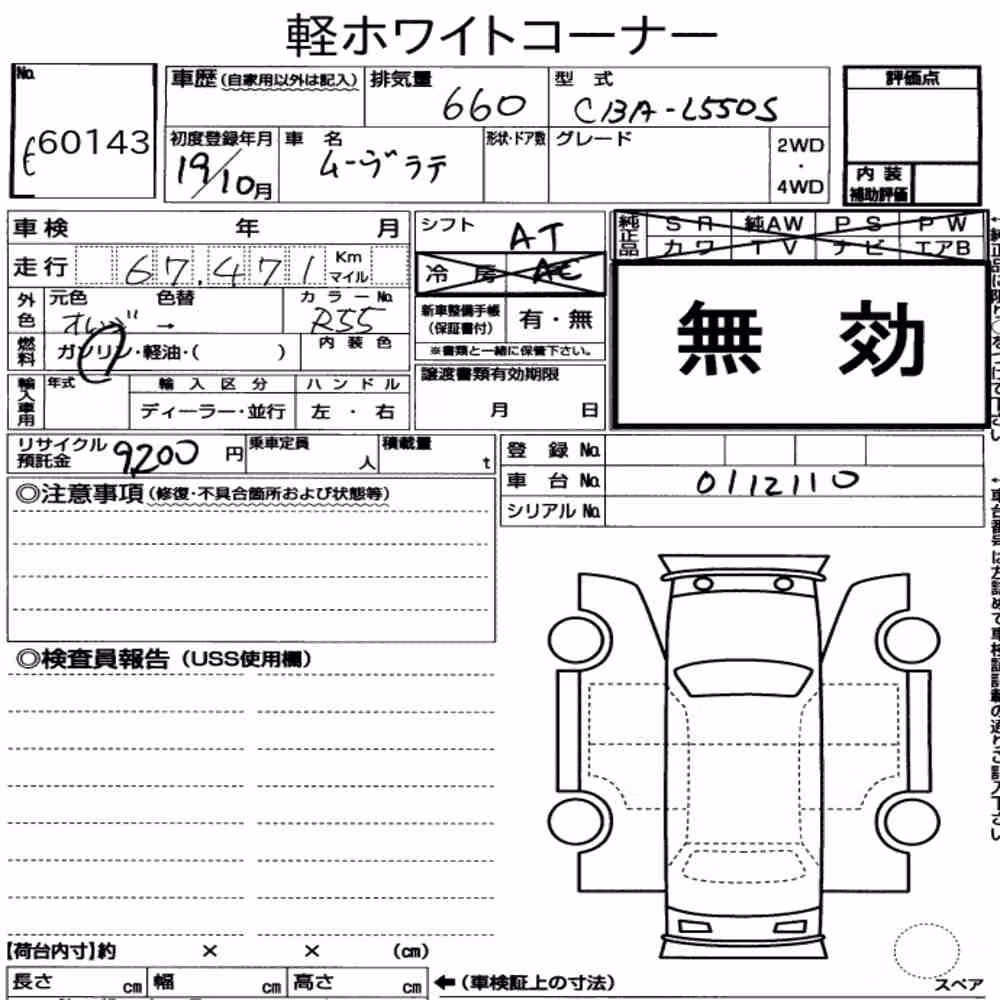 軽ホワイトコーナー
No. 60143
車歴(自家用以外は記入) 排気量 660 型式 CBA-L550S 評価点
初度登録年月 19/10月 車名 ムーヴラテ 形状・ドア数 グレード 2WD・4WD
内装補助評価
車検 年 月 シフト AT
純正品 SR 純AW PS PW
カワ TV ナビ エアB
走行 67,471 Km マイル 冷房 AC
外色 元色 オレンジ → 色替 カラーNo. R55
新車整備手帳(保証書付) 有・無
※書類と一緒に保管下さい。
無効
燃料 ガソリン・軽油・( ) 内装色
輸入車用 年式 輸入区分 ハンドル
ディーラー・並行 左・右
譲渡書類有効期限
月 日
リサイクル預託金 9,200 円 乗車定員 人 積載量 t
登録No.
車台No. 0112110
シリアルNo.
◎注意事項(修復・不具合箇所および状態等)
◎検査員報告(USS使用欄)
【荷台内寸】約 × × (cm)
長さ cm 幅 cm 高さ cm ←(車検証上の寸法)
スペア